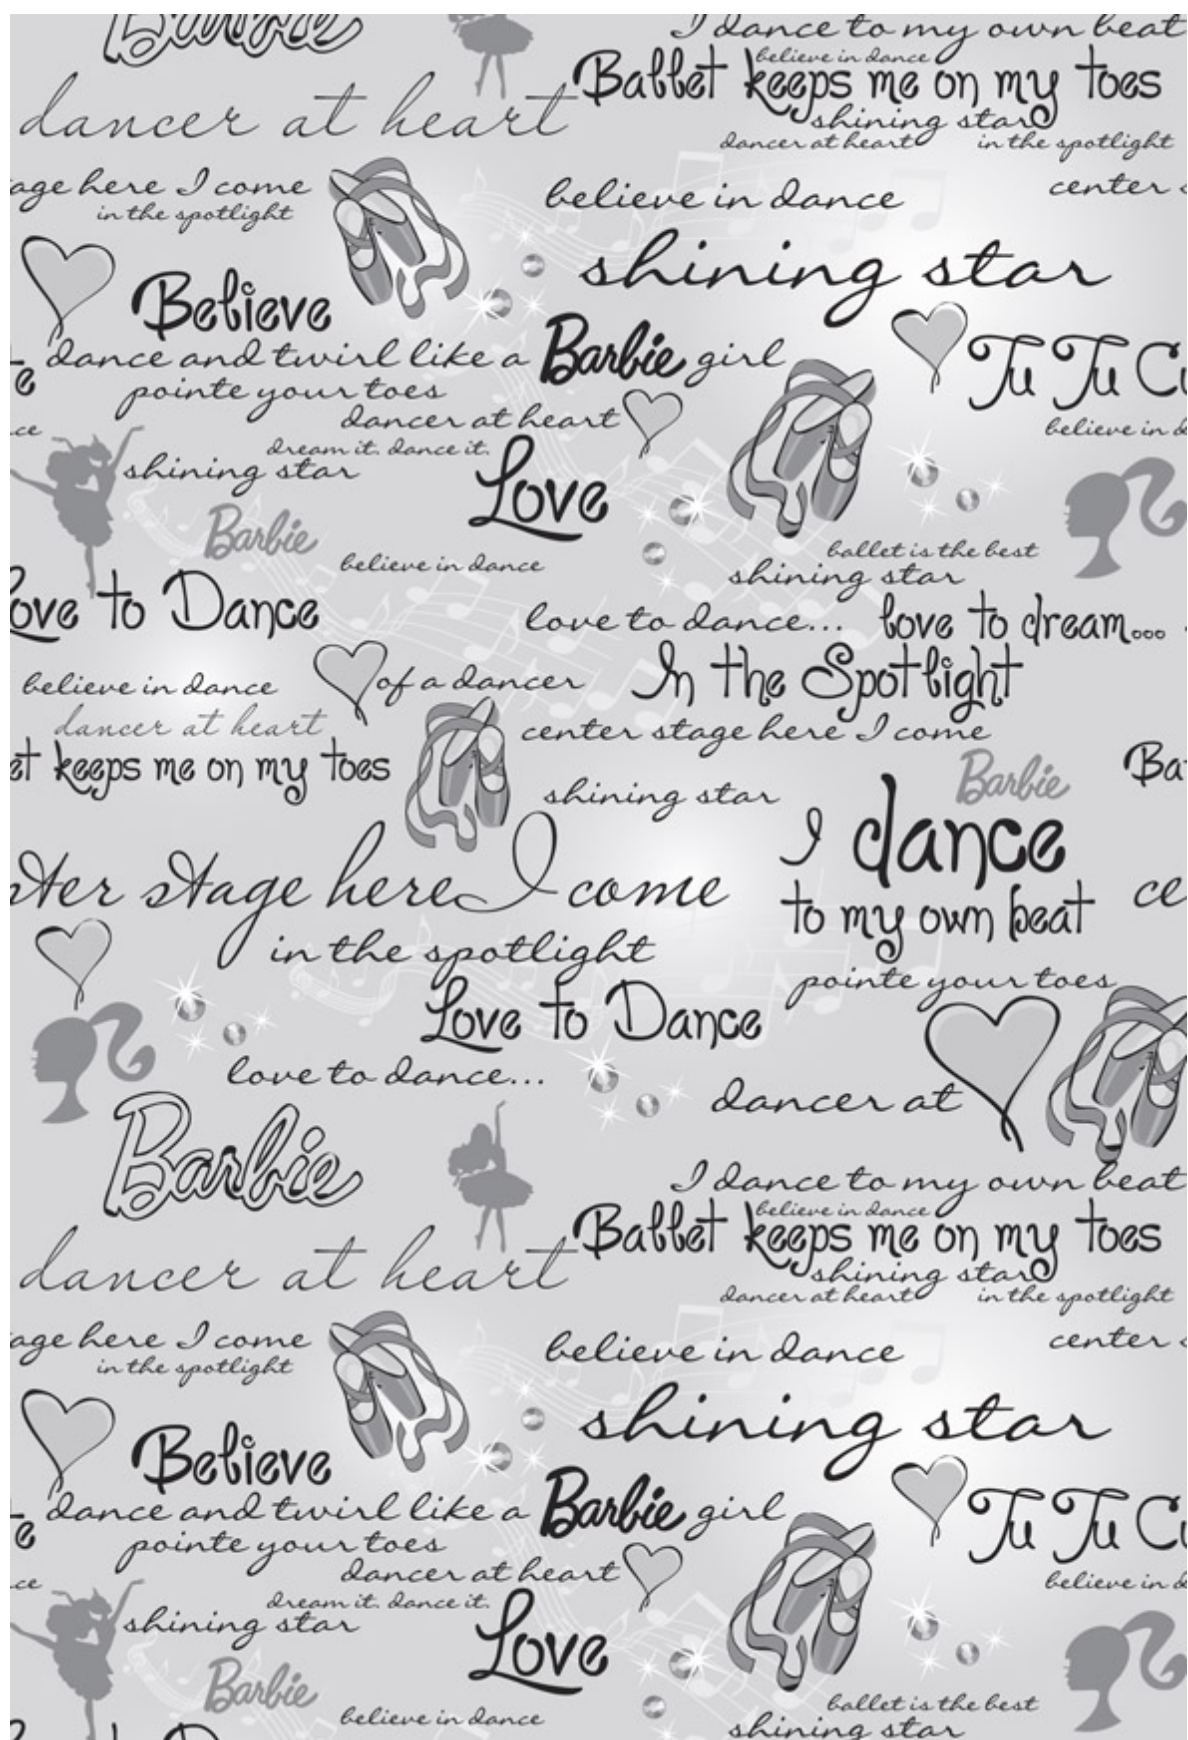 Barbie
I dance to my own beat
believe in dance
Ballet keeps me on my toes
dancer at heart
shining star
dancer at heart in the spotlight
age here I come
in the spotlight
believe in dance
center
shining star
Believe
dance and twirl like a Barbie girl
Tu Tu Cu
pointe your toes
dancer at heart
believe in d
dream it. dance it.
shining star
Love
Barbie
believe in dance
ballet is the best
shining star
ove to Dance
love to dance...
love to dream...
believe in dance
of a dancer
In the Spotlight
dancer at heart
center stage here I come
et keeps me on my toes
Barbie
Ba
shining star
I dance
to my own beat
nter stage here I come
ce
in the spotlight
pointe your toes
Love to Dance
love to dance...
dancer at
Barbie
I dance to my own beat
believe in dance
Ballet keeps me on my toes
dancer at heart
shining star
dancer at heart in the spotlight
age here I come
in the spotlight
believe in dance
center
shining star
Believe
dance and twirl like a Barbie girl
Tu Tu Cu
pointe your toes
dancer at heart
believe in d
dream it. dance it.
shining star
Love
Barbie
believe in dance
ballet is the best
shining star